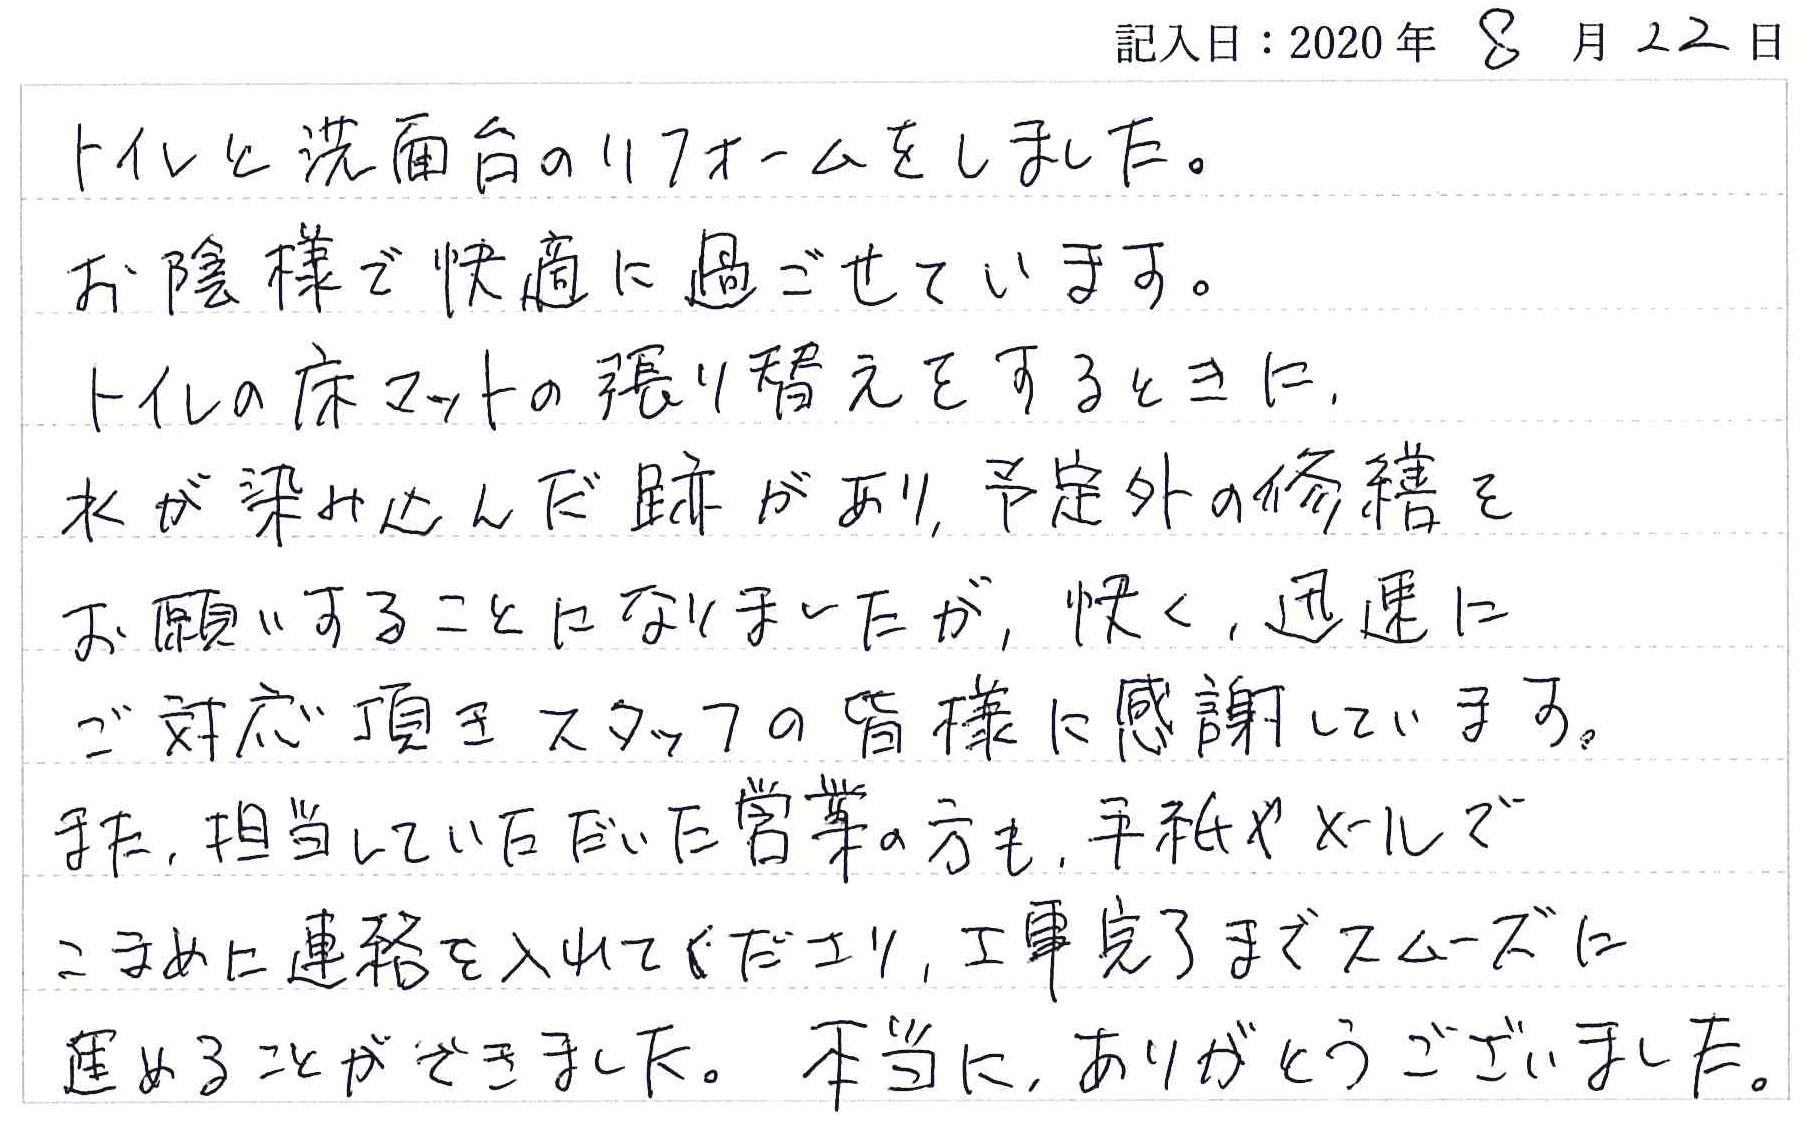 記入日：2020年 8 月 22 日
トイレと洗面台のリフォームをしました。
お陰様で快適に過ごせています。
トイレの床マットの張り替えをするときに、
水が染み込んだ跡があり、予定外の修繕を
お願いすることになりましたが、快く、迅速に
ご対応頂きスタッフの皆様に感謝しています。
また、担当していただいた営業の方も、手紙やメールで
こまめに連絡を入れてくださり、工事完了までスムーズに
進めることができました。本当に、ありがとうございました。